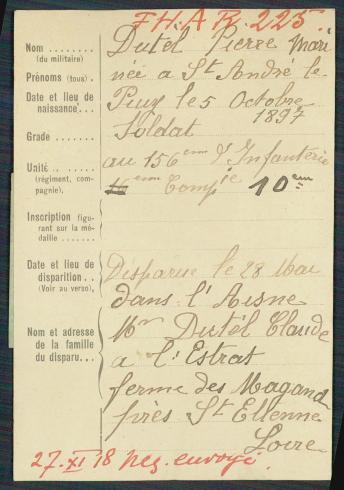 FH.A R. 225.
Nom ........ Dutel Pierre Mari
(du militaire)
Prénoms (tous). née a St André le
Date et lieu de Puy le 5 Octobre
naissance... 1897
Grade ....... Soldat
Unité .. ..... au 156eme d'Infanterie
(régiment, com- eme Compie 10em
pagnie).
Inscription (figu-
rant sur la mé-
daille .......
Date et lieu de Disparue le 28 Mai
disparition..
(Voir au verso), dans l'Aisne
Nom et adresse Mr Dutel Claude
de la famille
du disparu... a l'Estrat
ferme des Magand
près St Etienne
Loire
27.XI 18 Neg. envoyé.